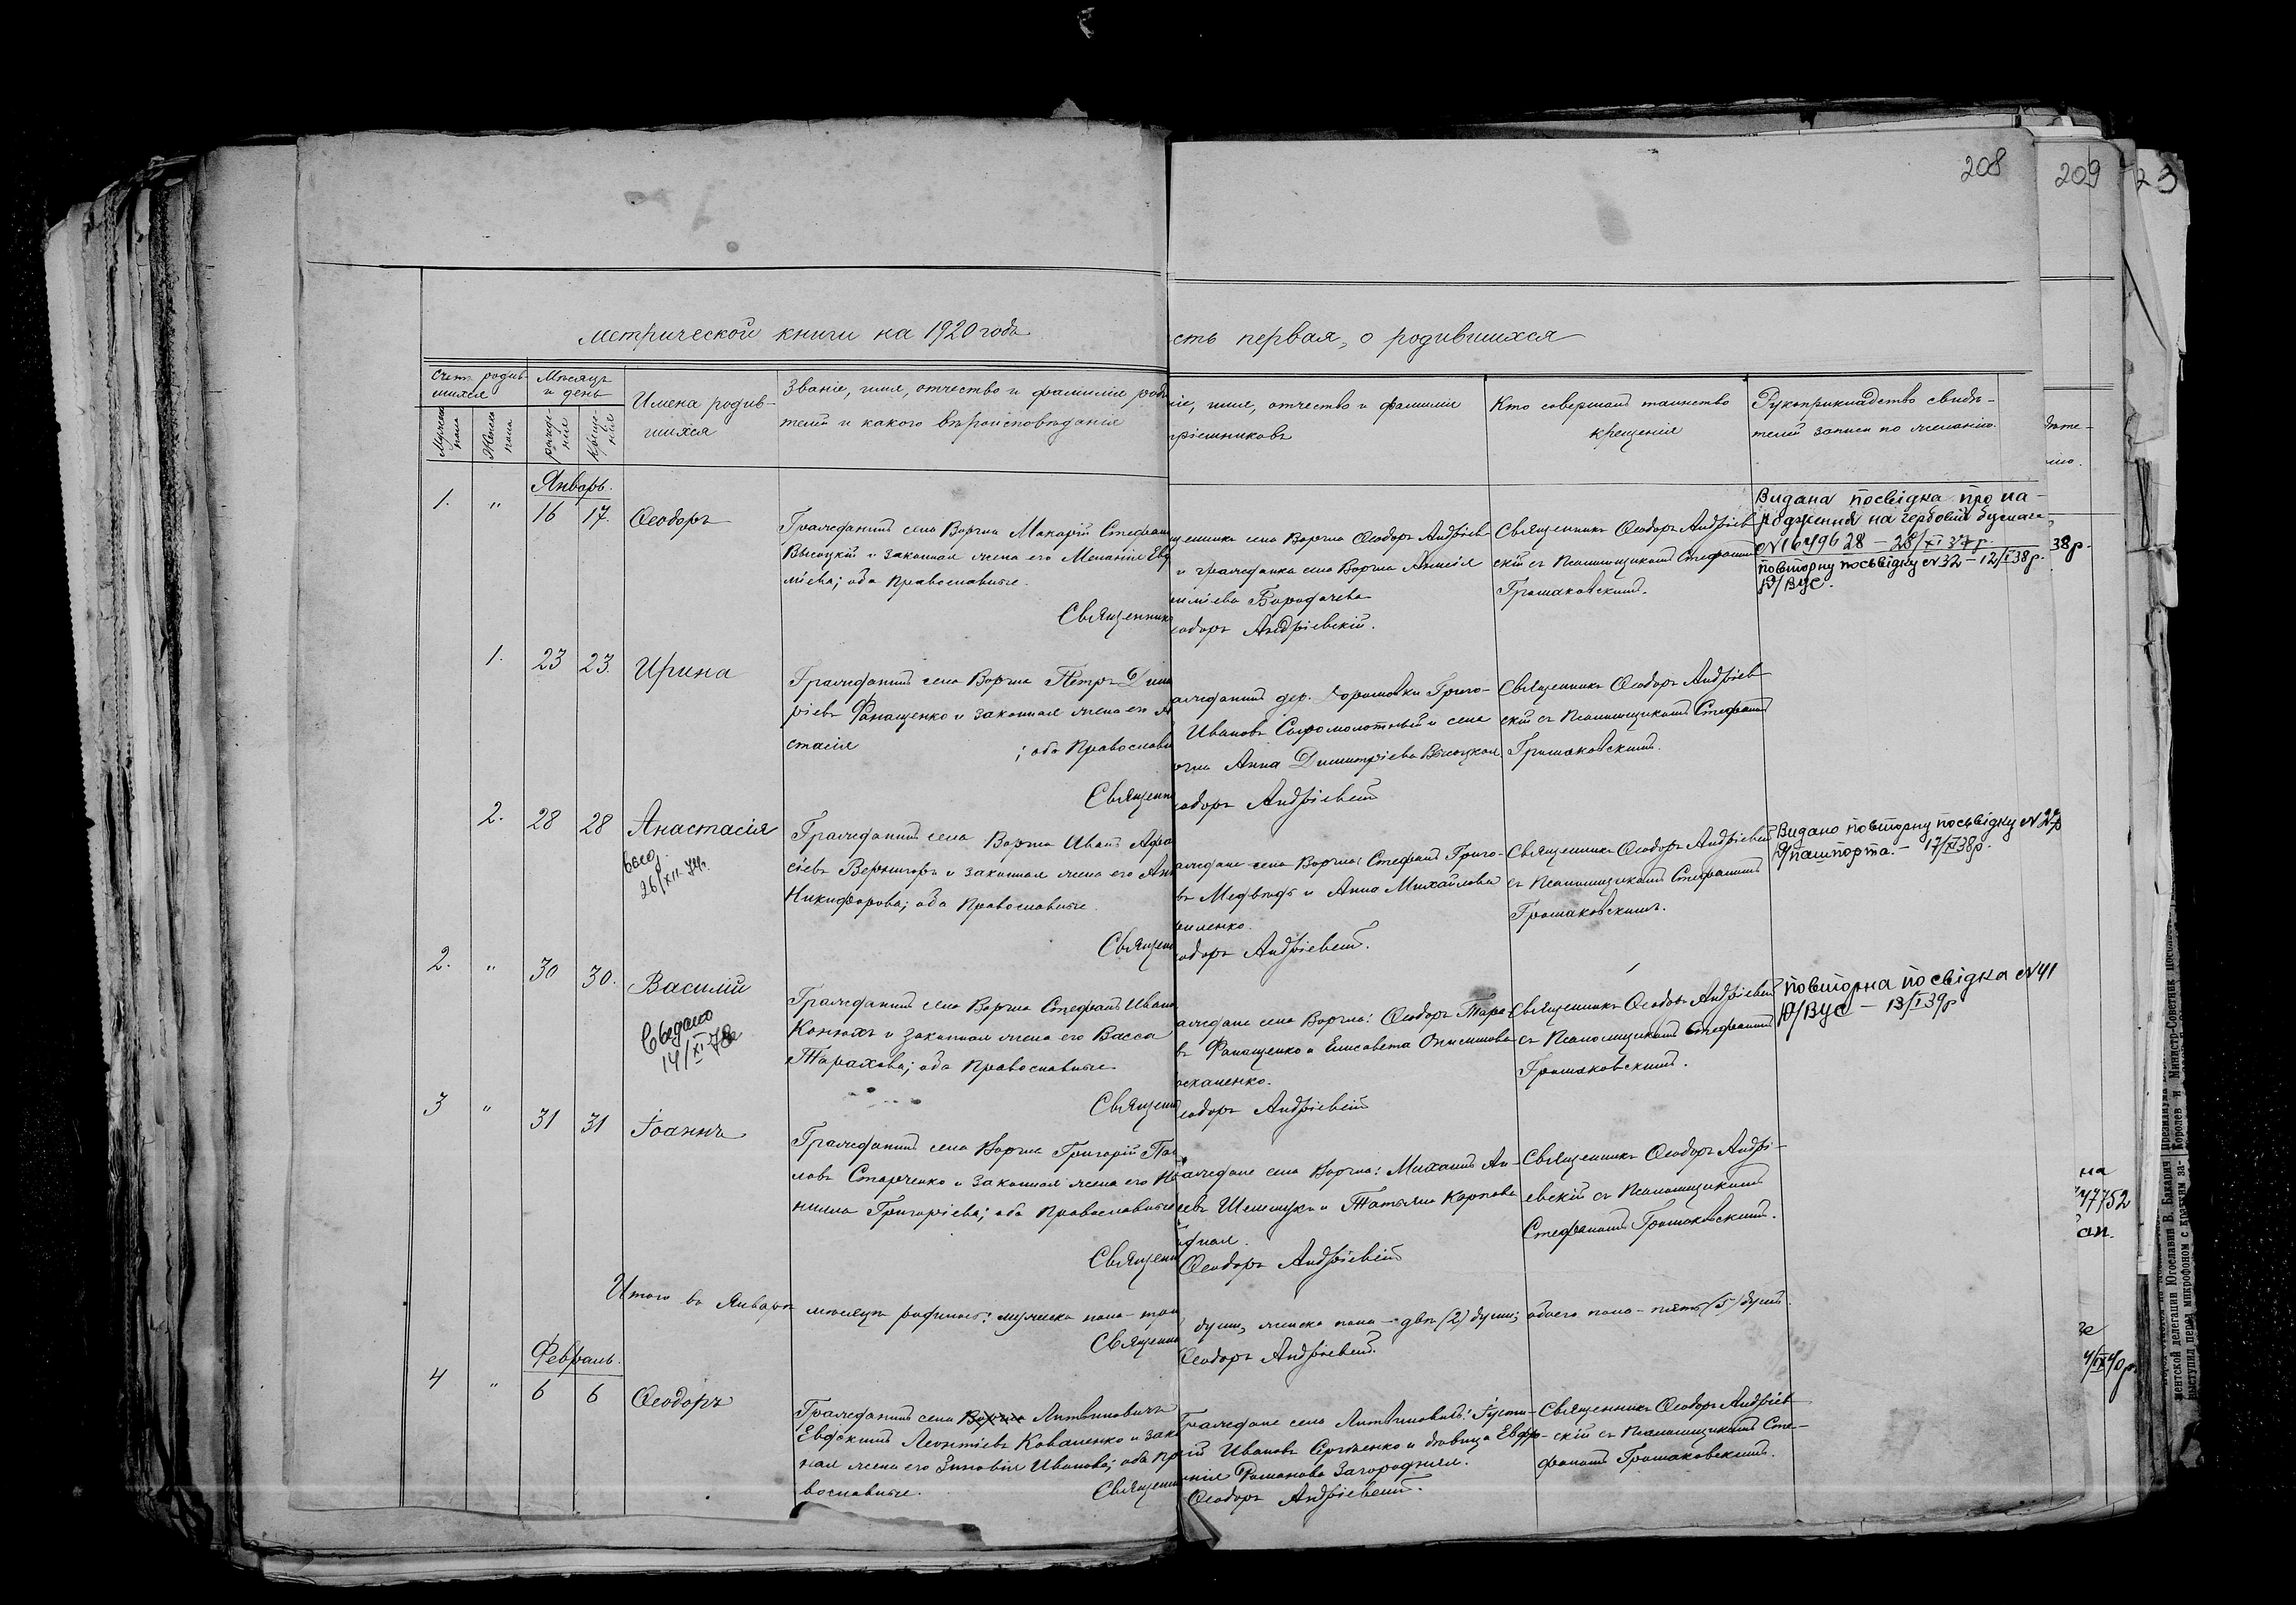 208
209
23
метрической книги на 1920 годъ
сть первая, о родившихся
Счетъ родив-
шихся
Мужеска пола
Женска пола
Мѣсяцъ
и день
рожде-
нія
креще-
нія
Имена родив-
шихся
Званіе, имя, отчество и фамилія роди
телей и какого вѣроисповѣданія
ніе, имя, отчество и фамилія
пріемниковъ
Кто совершалъ таинство
крещенія
Рукоприкладство свидѣ-
телей записи по желанію.
Январь.
1. " 16 17. Ѳеодоръ
Гражданинъ села Воргла Макарій Стефан
Высоцкій и законная жена его Меланія Ев
мiева; оба Православные.
Священник
щенникъ села Воргла Ѳеодоръ Андріев
и гражданка села Воргла
Бородачева
еодоръ Андріевскій.
Священникъ Ѳеодоръ Андріев
скій съ Псаломщикомъ Стефаномъ
Громаковскимъ.
Видана посвідка про на-
родження на гербовій бумаге
N 1649628 – 28/XI 37р.
повторну посьвідку N 32 – 12/I 38р.
Д/ВУС.
38р.
1. 23 23. Ирина
Гражданинъ села Воргла Петръ Дим
ріевъ Фанащенко и законная жена его А
стасія ; оба Православн
Священн
ажданинъ дер. Дорошовки Григо-
Ивановъ Сыромолотный и села
оргла Анна Димитріева Высоцкая.
еодоръ Андріевскій
Священникъ Ѳеодоръ Андріев
скій съ Псаломщикомъ Стефаномъ
Громаковскимъ.
2. 28 28 Анастасія
26/XII-74г.
Гражданинъ села Воргла Иванъ Афа
сіевъ Вернигоръ и законная жена его Ан
Никифорова; оба Православные.
Священ
аждане села Воргла: Стефанъ Григо-
въ Медвѣдь и Анна Михайлова
иленко.
одоръ Андріевскій.
Священникъ Ѳеодоръ Андріевскій
съ Псаломщикомъ Стефаномъ
Громаковскимъ.
Видано повторну посьвідку N 27
Д/пашпорта. – 17/XI 38р.
2. " 30 30. Василій
Свѣдано
14/XI-78г
Гражданинъ села Воргла Стефанъ Ивано
Конюхъ и законная жена его Васса
Тарахова; оба Православные.
Священн
аждане села Воргла: Ѳеодоръ Тара-
въ Фанащенко и Елисавета Онисимова
оскаленко.
еодоръ Андріевскій
Священникъ Ѳеодоръ Андріевскій
съ Псаломщикомъ Стефаномъ
Громаковскимъ.
повторна посвідка N 41
Д/ВУС – 13/I 39р
3 " 31 31 Іоаннъ
Гражданинъ села Воргла Григорій Па
ловъ Старченко и законная жена его Не
нилла Григоріева; оба Православные
Священн
аждане села Воргла: Михаилъ Ан-
еевъ Шемшукъ и Татьяна Карпова
одная.
Ѳеодоръ Андріевскій
Священникъ Ѳеодоръ Андрі-
евскій съ Псаломщикомъ
Стефаномъ Громаковскимъ.
на
47752
ап.
Итого въ Январѣ мѣсяцѣ родилось: мужеска пола – три
душъ, женска пола – двѣ (2) души; обоего пола – пять (5) душъ.
Священн
Ѳеодоръ Андріевскій.
Февраль.
4 " 6 6 Ѳеодоръ
Гражданинъ села Воргла Литвиновичъ
Евдокимъ Леонтіевъ Коваленко и зако
ная жена его Зиновія Иванова; оба Пр
вославные.
Священн
Граждане села Литвиновичъ: Густи-
ній Ивановъ Сергіенко и дѣвица Евфро-
нія Романова Загородняя.
Ѳеодоръ Андріевскій.
Священникъ Ѳеодоръ Андріев
скій съ Псаломщикомъ Сте-
фаномъ Громаковскимъ.
4/IX 40р.